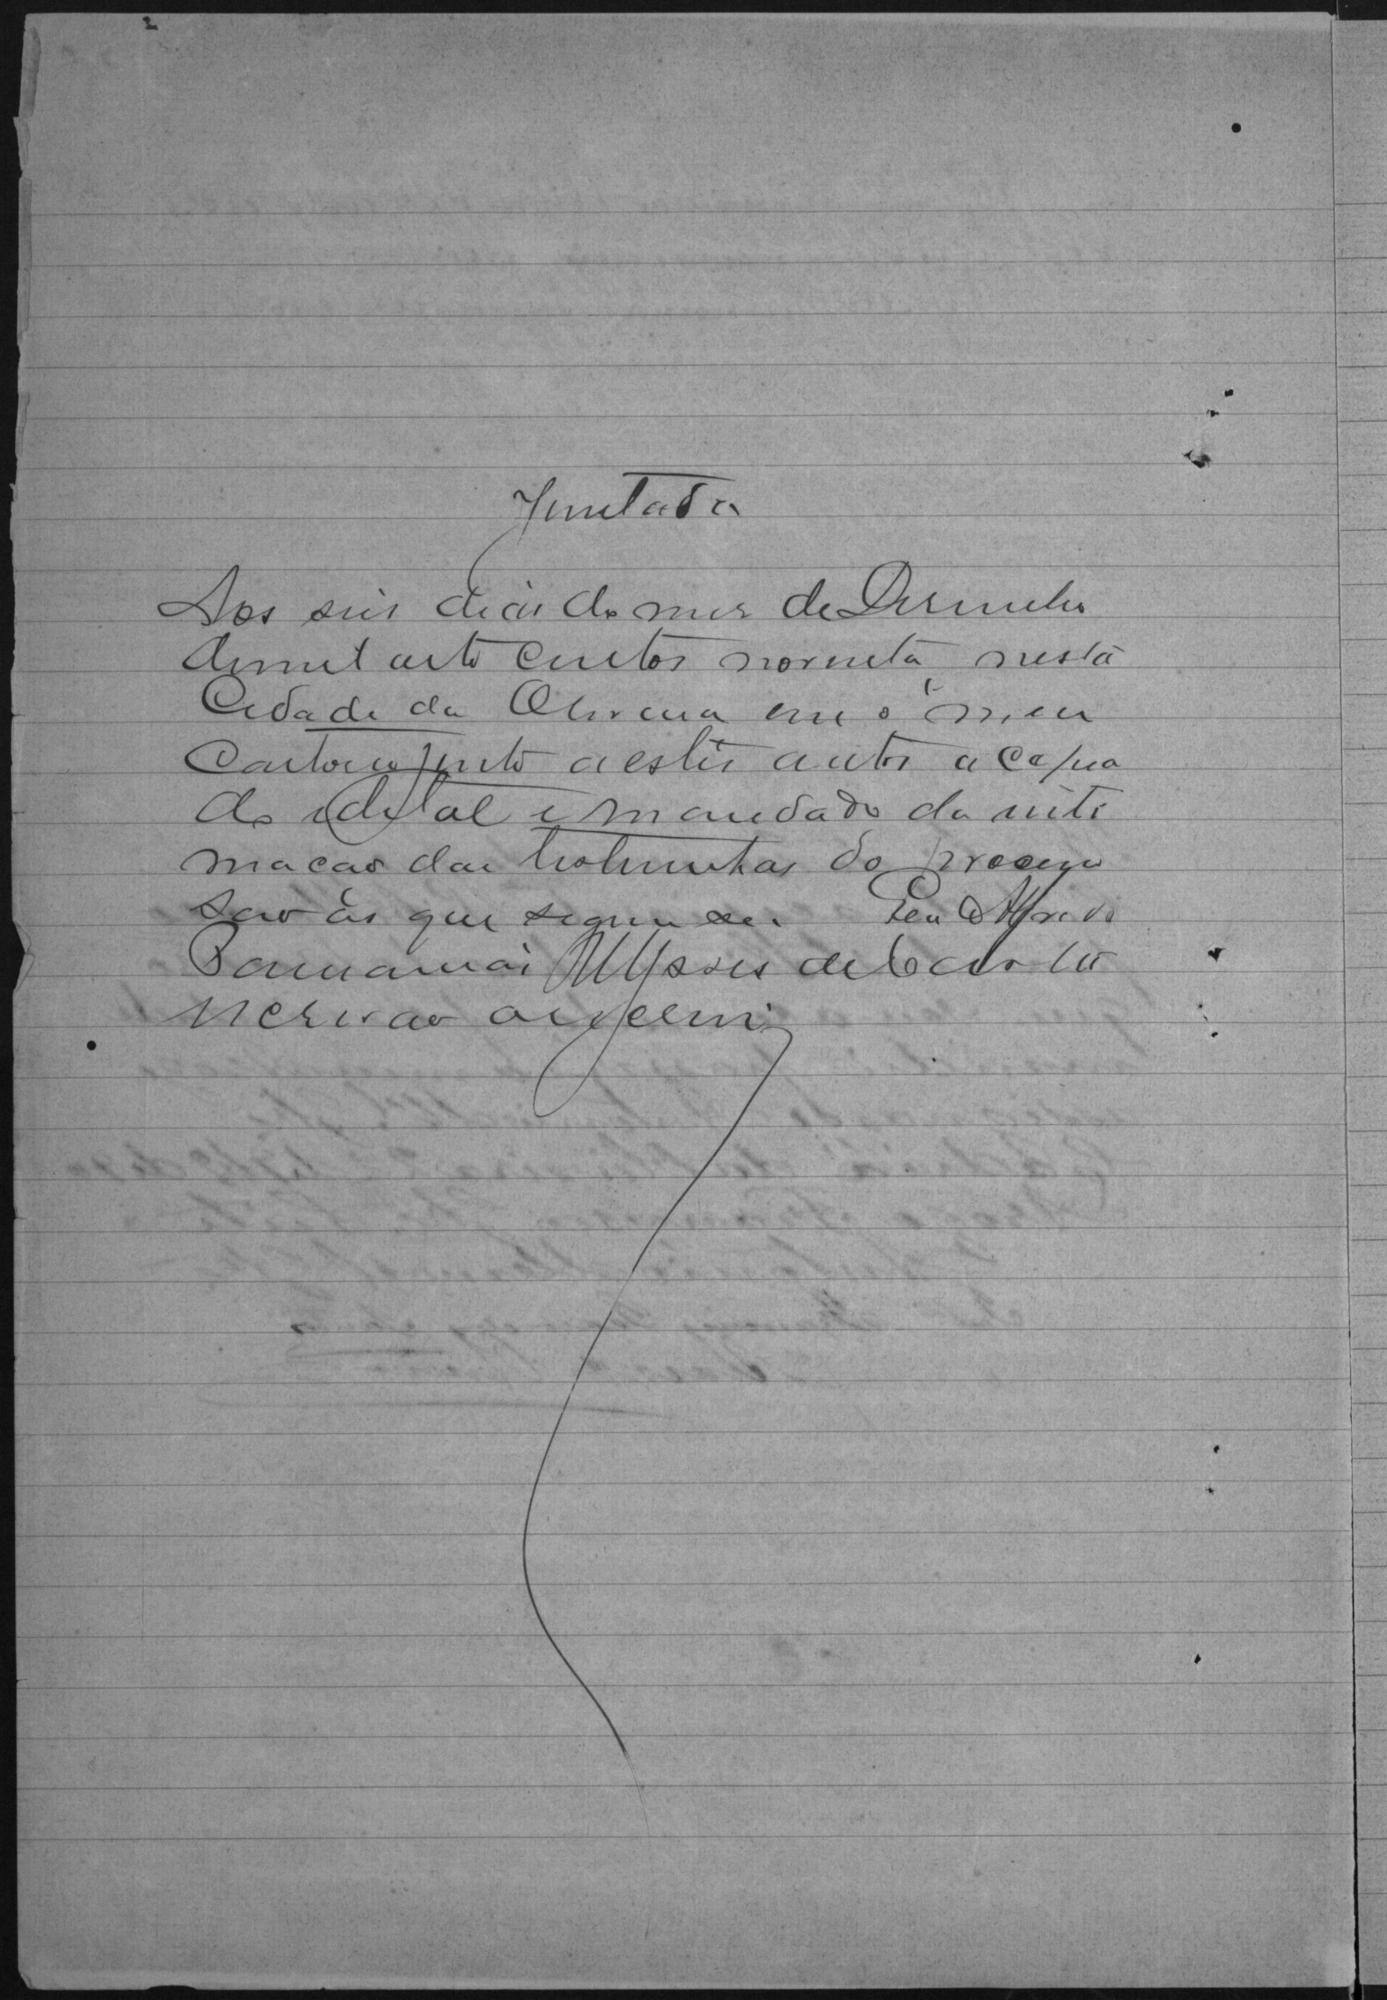 Juntada
Aos seis dias do mes de Dezembro
de mil oito centos noventa nesta
Cidade da Oliveira em o meu
Cartorio junto a estes autos a copia
do edital e mandado da inti
macao das testemunhas do processo
sao as que seguem se. Eu Alfredo
Ulysses de Castro
escrivao o escrevi